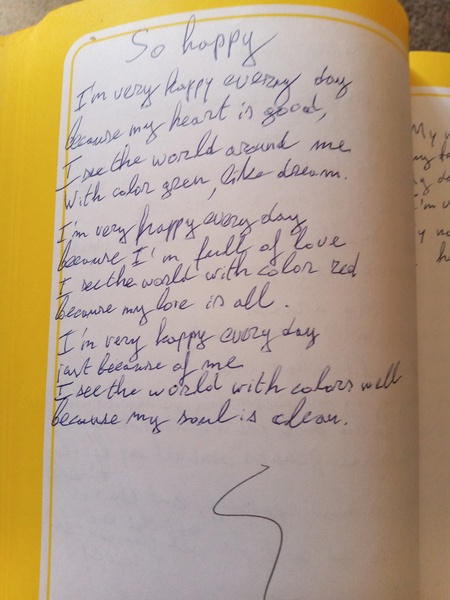 So happy
I'm very happy every day
because my heart is good,
I see the world around me
with color green, like dream.
I'm very happy every day
because I'm full of love
I see the world with color red
because my love is all.
I'm very happy every day
just because of me
I see the world with colors well
because my soul is clean.
My
I'm